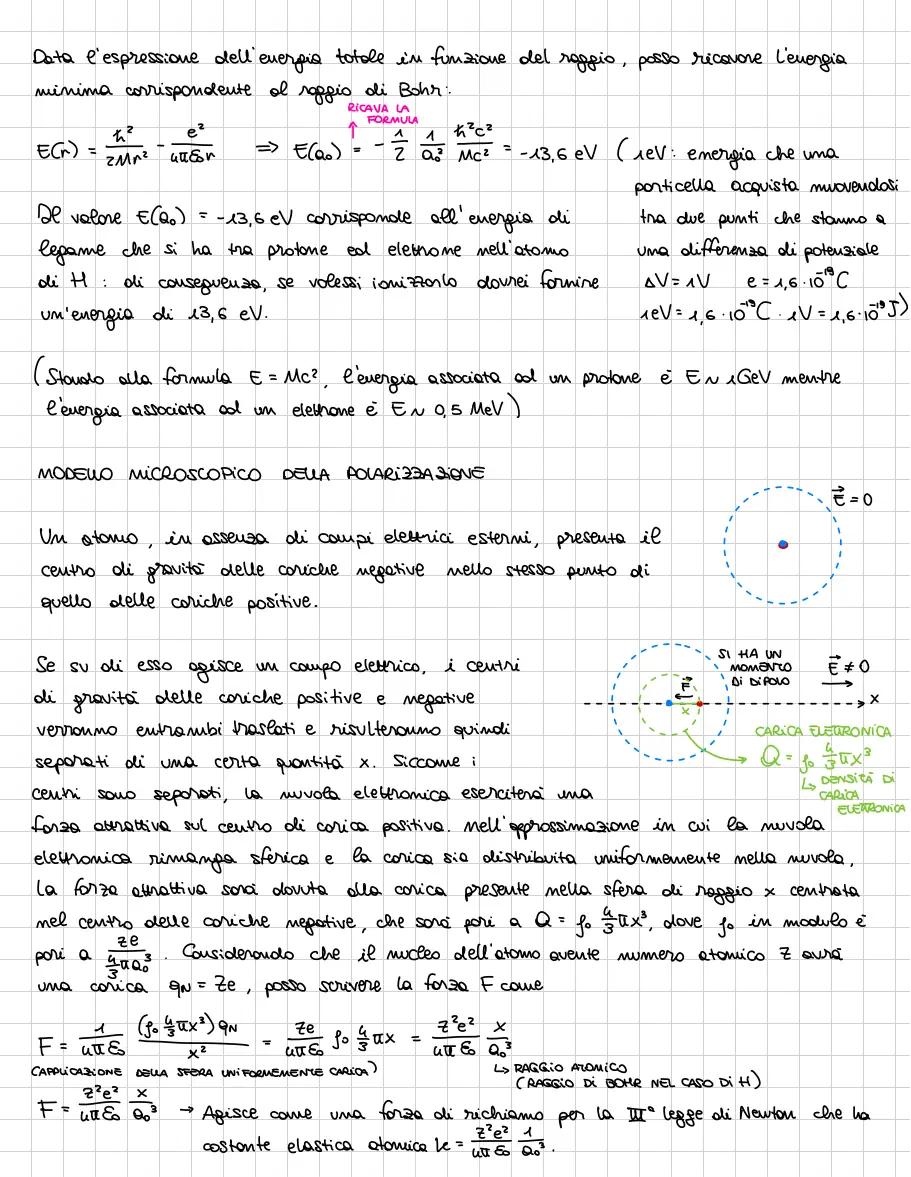 Data l'espressione dell'energia totale in funzione del raggio, posso ricavare l'energia
minima corrispondente al raggio di Bohr:
RICAVA LA
FORMULA
E(r) = ℏ²/2Mr² - e²/4πε₀r ⇒ E(a₀) = - 1/2 1/a₀² ℏ²c²/Mc² = -13,6 eV (1eV: energia che una
particella acquista muovendosi
Il valore E(a₀) = -13,6 eV corrisponde all'energia di
tra due punti che stanno a
legame che si ha tra protone ed elettrone nell'atomo
una differenza di potenziale
di H : di conseguenza, se volessi ionizzarlo dovrei fornire
ΔV = 1V e = 1,6·10⁻¹⁹C
un'energia di 13,6 eV.
1eV = 1,6·10⁻¹⁹C · 1V = 1,6·10⁻¹⁹J)
(Stando alla formula E = Mc², l'energia associata ad un protone è E ~ 1GeV mentre
l'energia associata ad un elettrone è E ~ 0,5 MeV)
MODELLO MICROSCOPICO DELLA POLARIZZAZIONE
E⃗ = 0
Un atomo, in assenza di campi elettrici esterni, presenta il
centro di gravità delle cariche negative nello stesso punto di
quello delle cariche positive.
SI HA UN
MOMENTO
DI DIPOLO
E⃗ ≠ 0
F⃗
x
x
Se su di esso agisce un campo elettrico, i centri
di gravità delle cariche positive e negative
verranno entrambi traslati e risulteranno quindi
CARICA ELETTRONICA
separati di una certa quantità x. Siccome i
Q = ρ₀ 4/3 πx³
↳ DENSITÀ DI
CARICA
ELETTRONICA
centri sono separati, la nuvola elettronica eserciterà una
forza attrattiva sul centro di carica positiva. nell'approssimazione in cui la nuvola
elettronica rimanga sferica e la carica sia distribuita uniformemente nella nuvola,
la forza attrattiva sarà dovuta alla carica presente nella sfera di raggio x centrata
nel centro delle cariche negative, che sarà pari a Q = ρ₀ 4/3 πx³, dove ρ₀ in modulo è
pari a Ze/(4/3 πa₀³). Considerando che il nucleo dell'atomo avente numero atomico Z avrà
una carica qN = Ze, posso scrivere la forza F come
F = 1/4πε₀ (ρ₀ 4/3 πx³) qN/x² = Ze/4πε₀ ρ₀ 4/3 πx = Z²e²/4πε₀ x/a₀³
(APPLICAZIONE DELLA SFERA UNIFORMEMENTE CARICA)
↳ RAGGIO ATOMICO
(RAGGIO DI BOHR NEL CASO DI H)
F = Z²e²/4πε₀ x/a₀³ → Agisce come una forza di richiamo per la IIIª legge di Newton che ha
costante elastica atomica k = Z²e²/4πε₀ 1/a₀³.